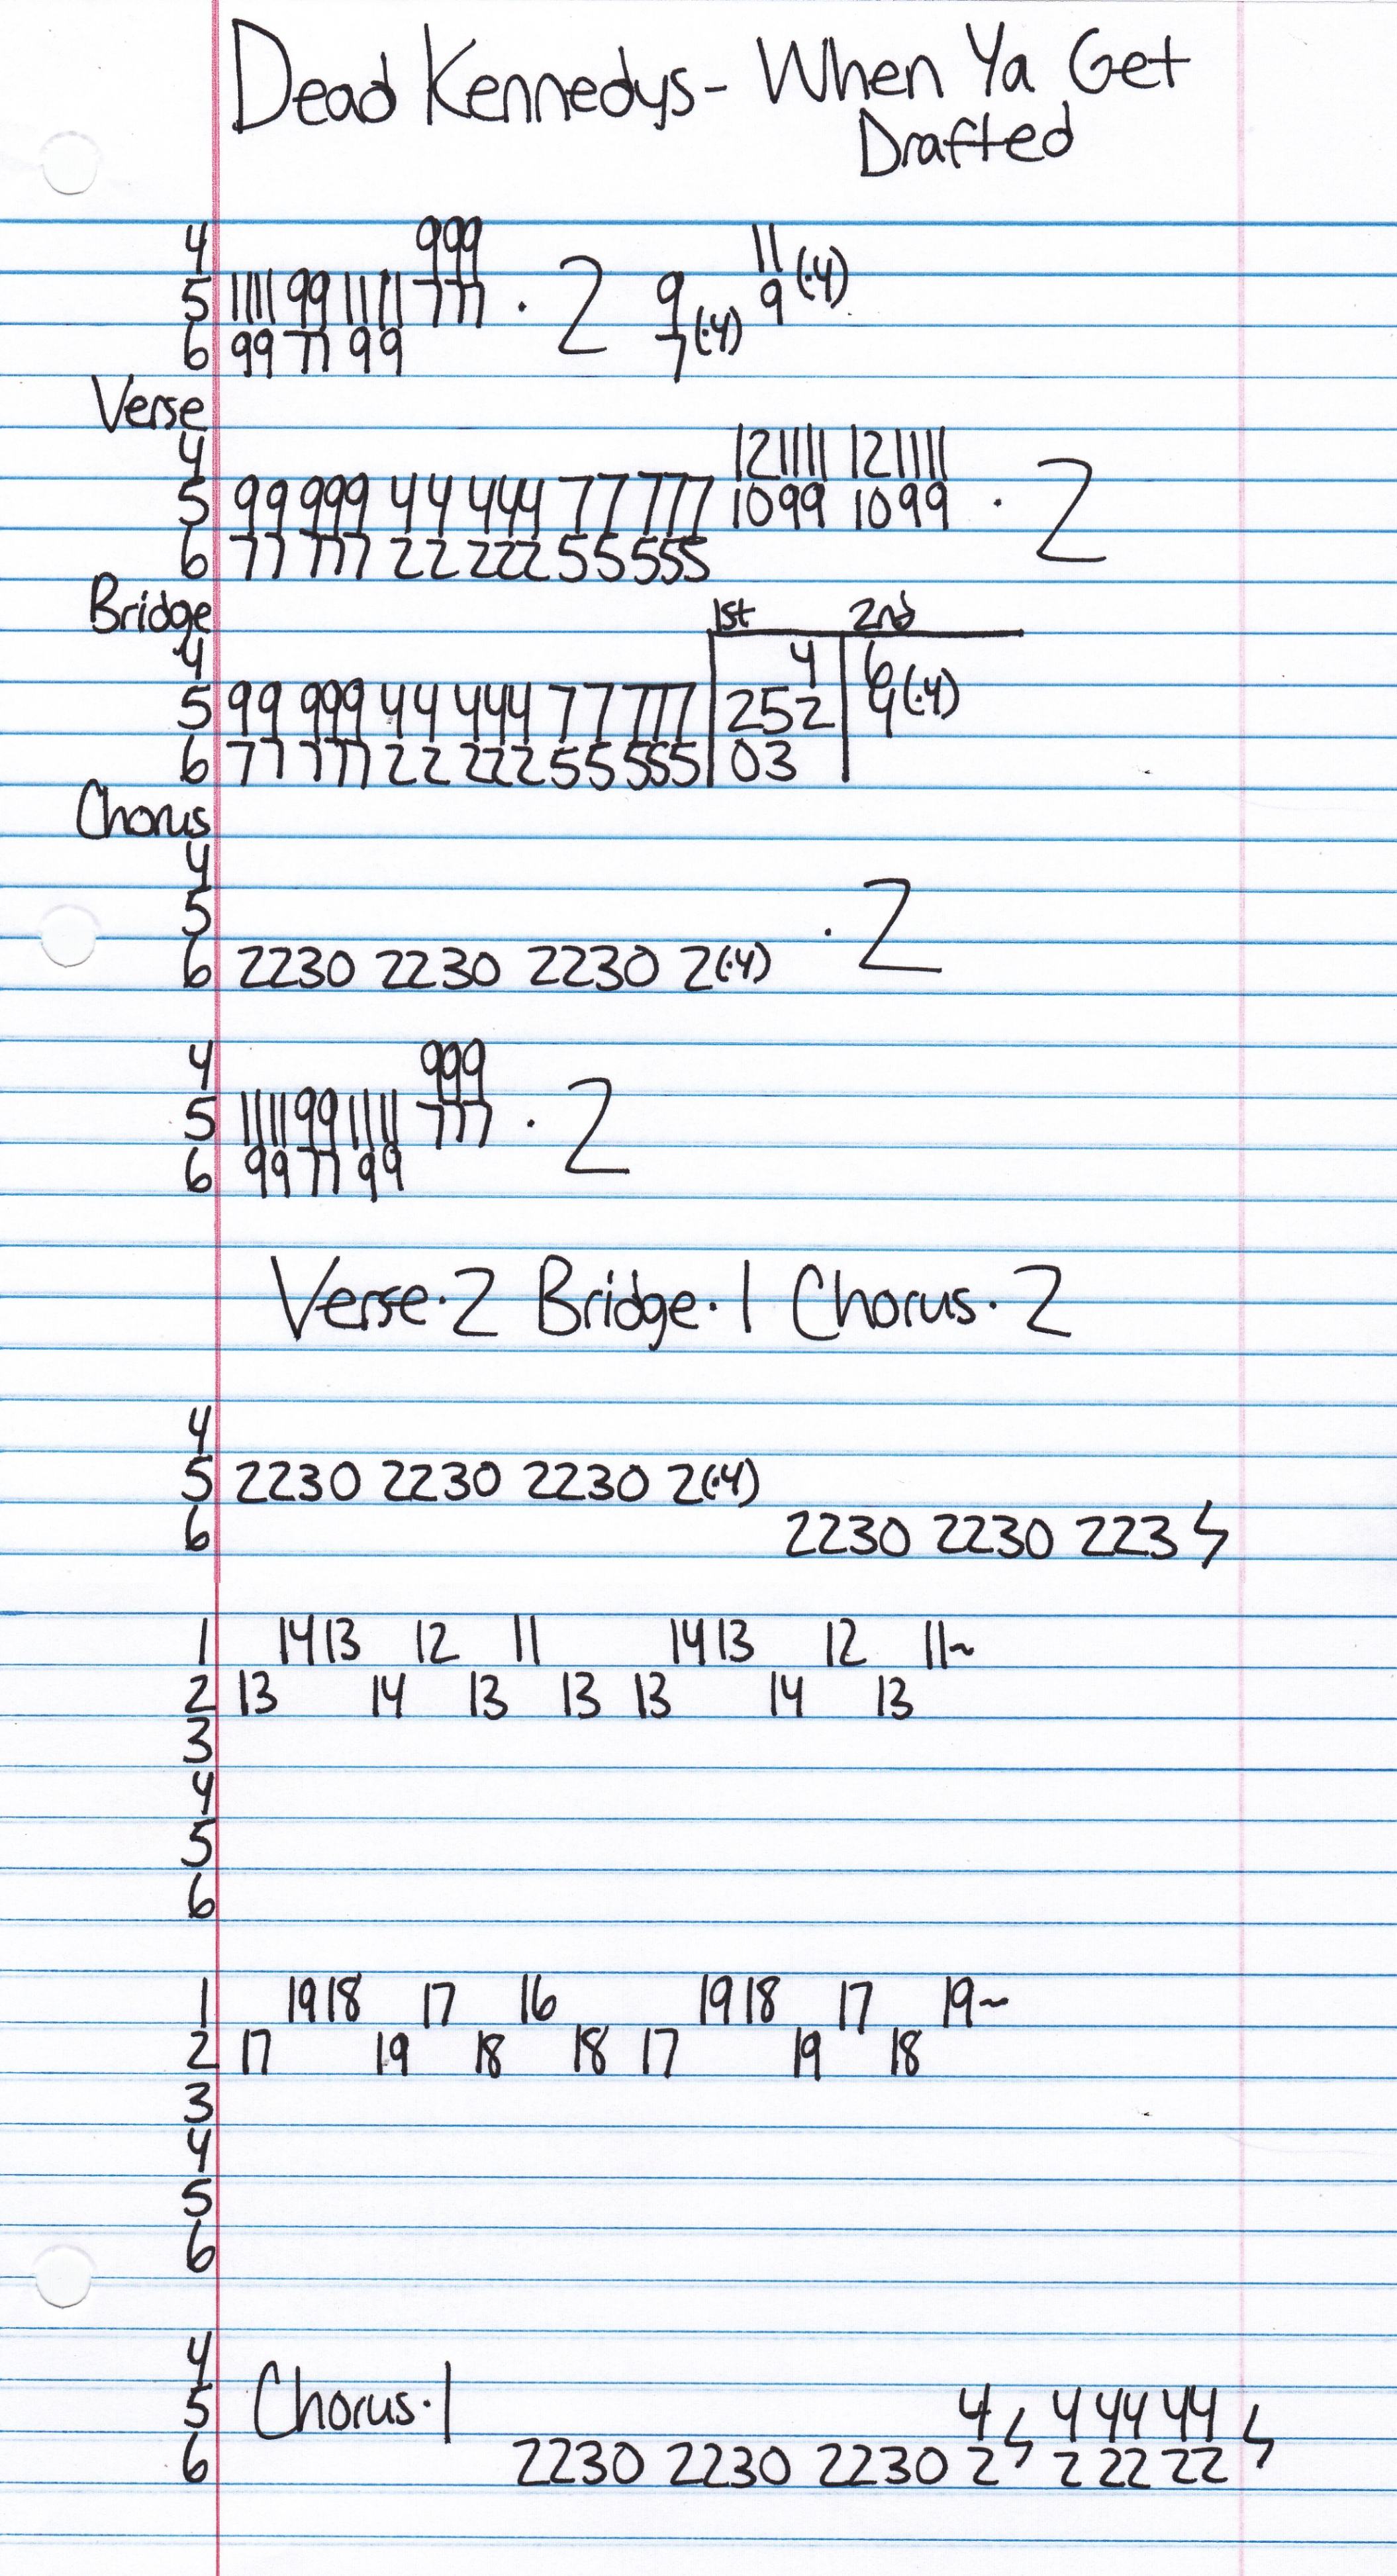 Dead Kennedys - When Ya Get
Drafted
4 999 11 (·4)
5 1111 99 1111 777 · 2 9 9
6 99 77 99 7 (·4)
Verse
4 121111 121111
5 99 999 44 444 77 777 1099 1099 · 2
6 77 777 22 222 55 555
Bridge 1st 2nd
4 4 6
5 99 999 44 444 77 777 252 4 (·4)
6 77 777 22 222 55 555 03
Chorus
4
5 · 2
6 2230 2230 2230 2(·4)
4 999
5 1111 99 1111 777 · 2
6 99 77 99
Verse·2 Bridge·1 Chorus·2
4
5 2230 2230 2230 2(·4)
6 2230 2230 223
1 14 13 12 11 14 13 12 11~
2 13 14 13 13 13 14 13
3
4
5
6
1 19 18 17 16 19 18 17 19~
2 17 19 18 18 17 19 18
3
4
5
6
4
5 Chorus·1 4 4 44 44
6 2230 2230 2230 2 2 22 22